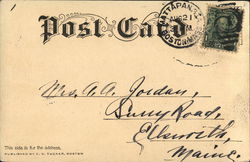 Post Card
MATTAPAN
AUG 21
BOSTON
Mrs. A. A. Jordan,
Surry Road,
Ellsworth,
Maine.
This side is for the address.
PUBLISHED BY TUCKER, BOSTON